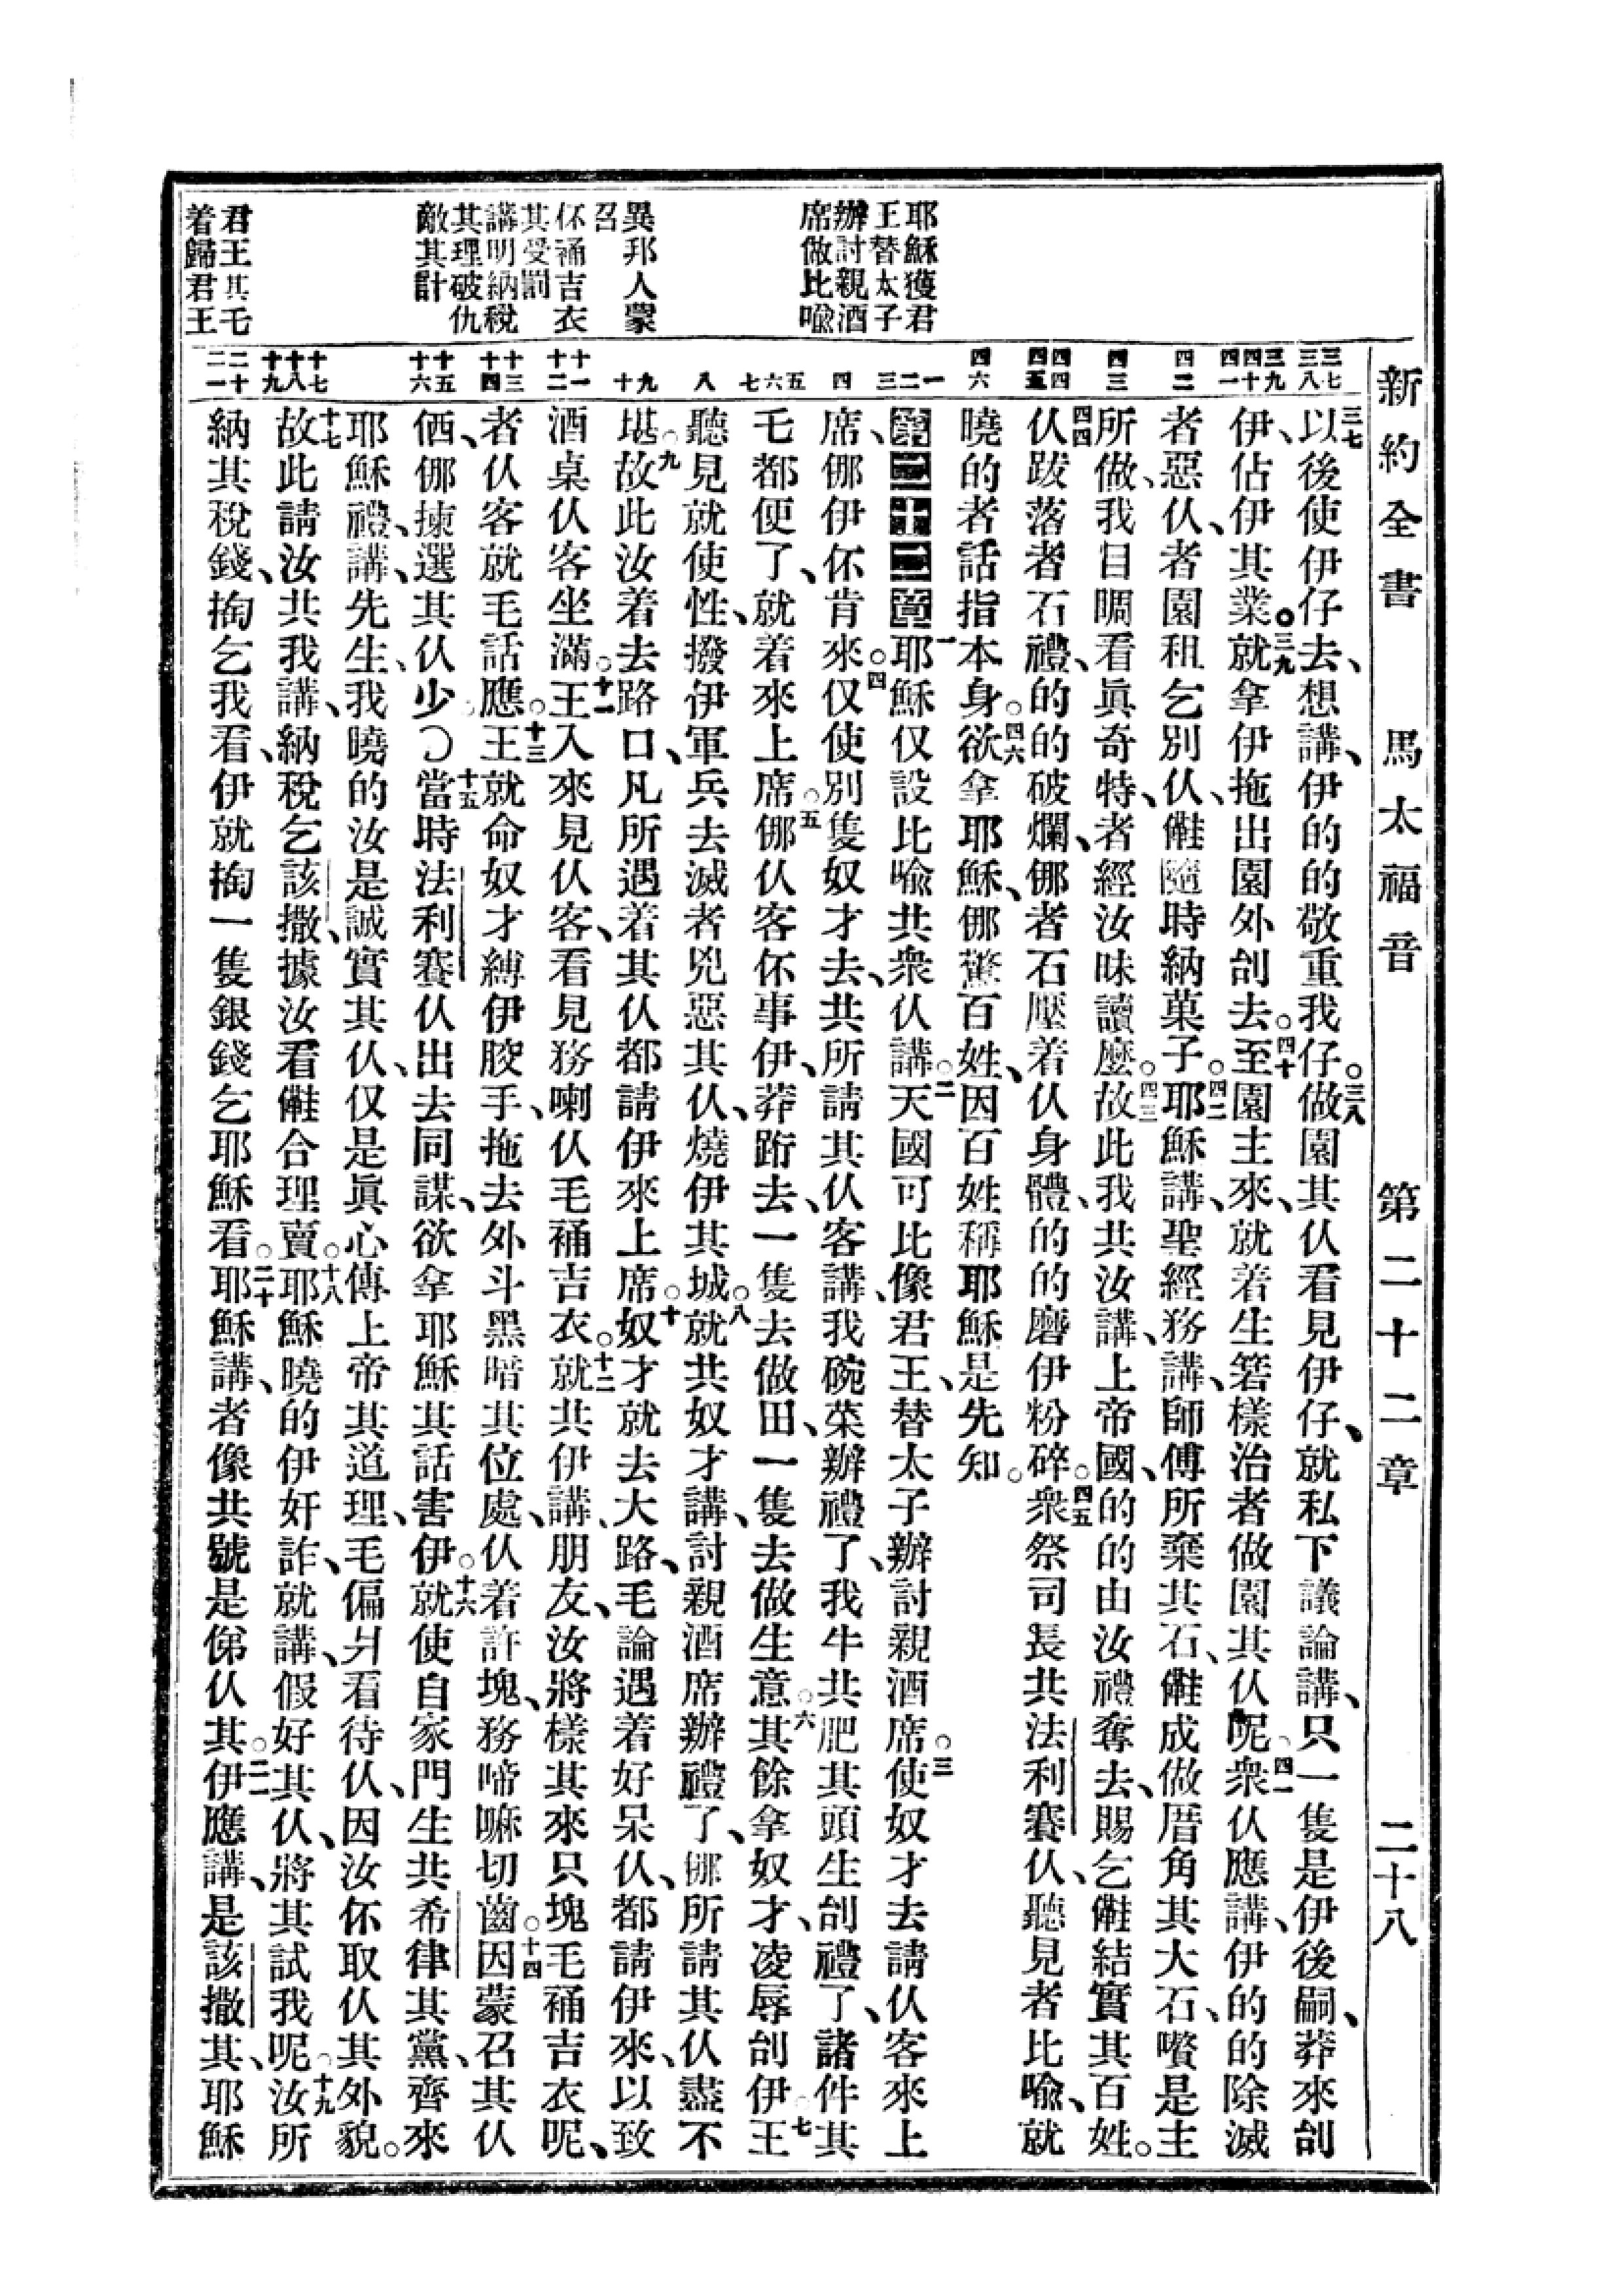 新約全書 馬太福音 第二十二章 二十八
耶穌獲君
王替太子
辦討親酒
席做比喩
異邦人蒙
召
伓𧙕吉衣
其受罰
講明納稅
其理破仇
敵其計
君王其乇
着歸君王
三七 三八
三九 四十 四一
四二
四三
四四 四五
四六
一 二 三
四
五 六 七
八
九 十
十一 十二
十三 十四
十五 十六
十七 十八 十九
二十 二一
三七以後使伊仔去、想講、伊的的敬重我仔。三八做園其仈看見伊仔、就私下議論講、只一隻是伊後嗣、莽來刣
伊、佔伊其業。三九就拿伊拖出園外刣去。四十至園主來、就着生箬樣治者做園其仈呢。四一衆仈應講、伊的的除滅
者惡仈、者園租乞別仈、㒕隨時納菓子。四二耶穌講、聖經務講、師傅所棄其石、㒕成做厝角其大石、嚽是主
所做、我目睭看眞奇特、者經汝昧讀麼。四三故此我共汝講、上帝國、的的由汝禮奪去、賜乞㒕結實其百姓。
四四仈跋落者石禮、的的破爛、㑚者石壓着仈身體、的的磨伊粉碎。四五衆祭司長共法利賽仈、聽見者比喩、就
曉的者話指本身。四六欲拿耶穌、㑚驚百姓、因百姓稱耶穌是先知。
第二十二章 一耶穌仅設比喩共衆仈講。二天國可比像君王、替太子辦討親酒席。三使奴才去請仈客來上
席、㑚伊伓肯來。四仅使別隻奴才去、共所請其仈客講、我碗菜辦禮了、我牛共肥其頭生刣禮了、諸件其
乇都便了、就着來上席。五㑚仈客伓事伊、莽跻去、一隻去做田、一隻去做生意。六其餘拿奴才、凌辱刣伊。七王
聽見就使性、撥伊軍兵去滅者兇惡其仈、燒伊其城。八就共奴才講、討親酒席辦禮了、㑚所請其仈盡不
堪。九故此汝着去路口、凡所遇着其仈都請伊來上席。十奴才就去大路、毛論遇着好呆仈、都請伊來、以致
酒桌仈客坐滿。十一王入來見仈客、看見務喇仈毛𧙕吉衣。十二就共伊講、朋友、汝將樣其來只塊毛𧙕吉衣呢、
者仈客就毛話應。十三王就命奴才縛伊骹手、拖去外斗黑暗其位處、仈着許塊、務啼嘛切齒。十四因蒙召其仈
㑽、㑚揀選其仈少〇十五當時法利賽仈出去同謀、欲拿耶穌其話害伊。十六就使自家門生共希律其黨、齊來
耶穌禮、講、先生、我曉的汝是誠實其仈、仅是眞心傳上帝其道理、毛偏爿看待仈、因汝伓取仈其外貌。
十七故此請汝共我講、納稅乞該撒、據汝看㒕合理賣。十八耶穌曉的伊奸詐、就講、假好其仈、將其試我呢。十九汝所
納其稅錢、掏乞我看、伊就掏一隻銀錢乞耶穌看。二十耶穌講、者像共號是㑋仈其。二一伊應講、是該撒其、耶穌